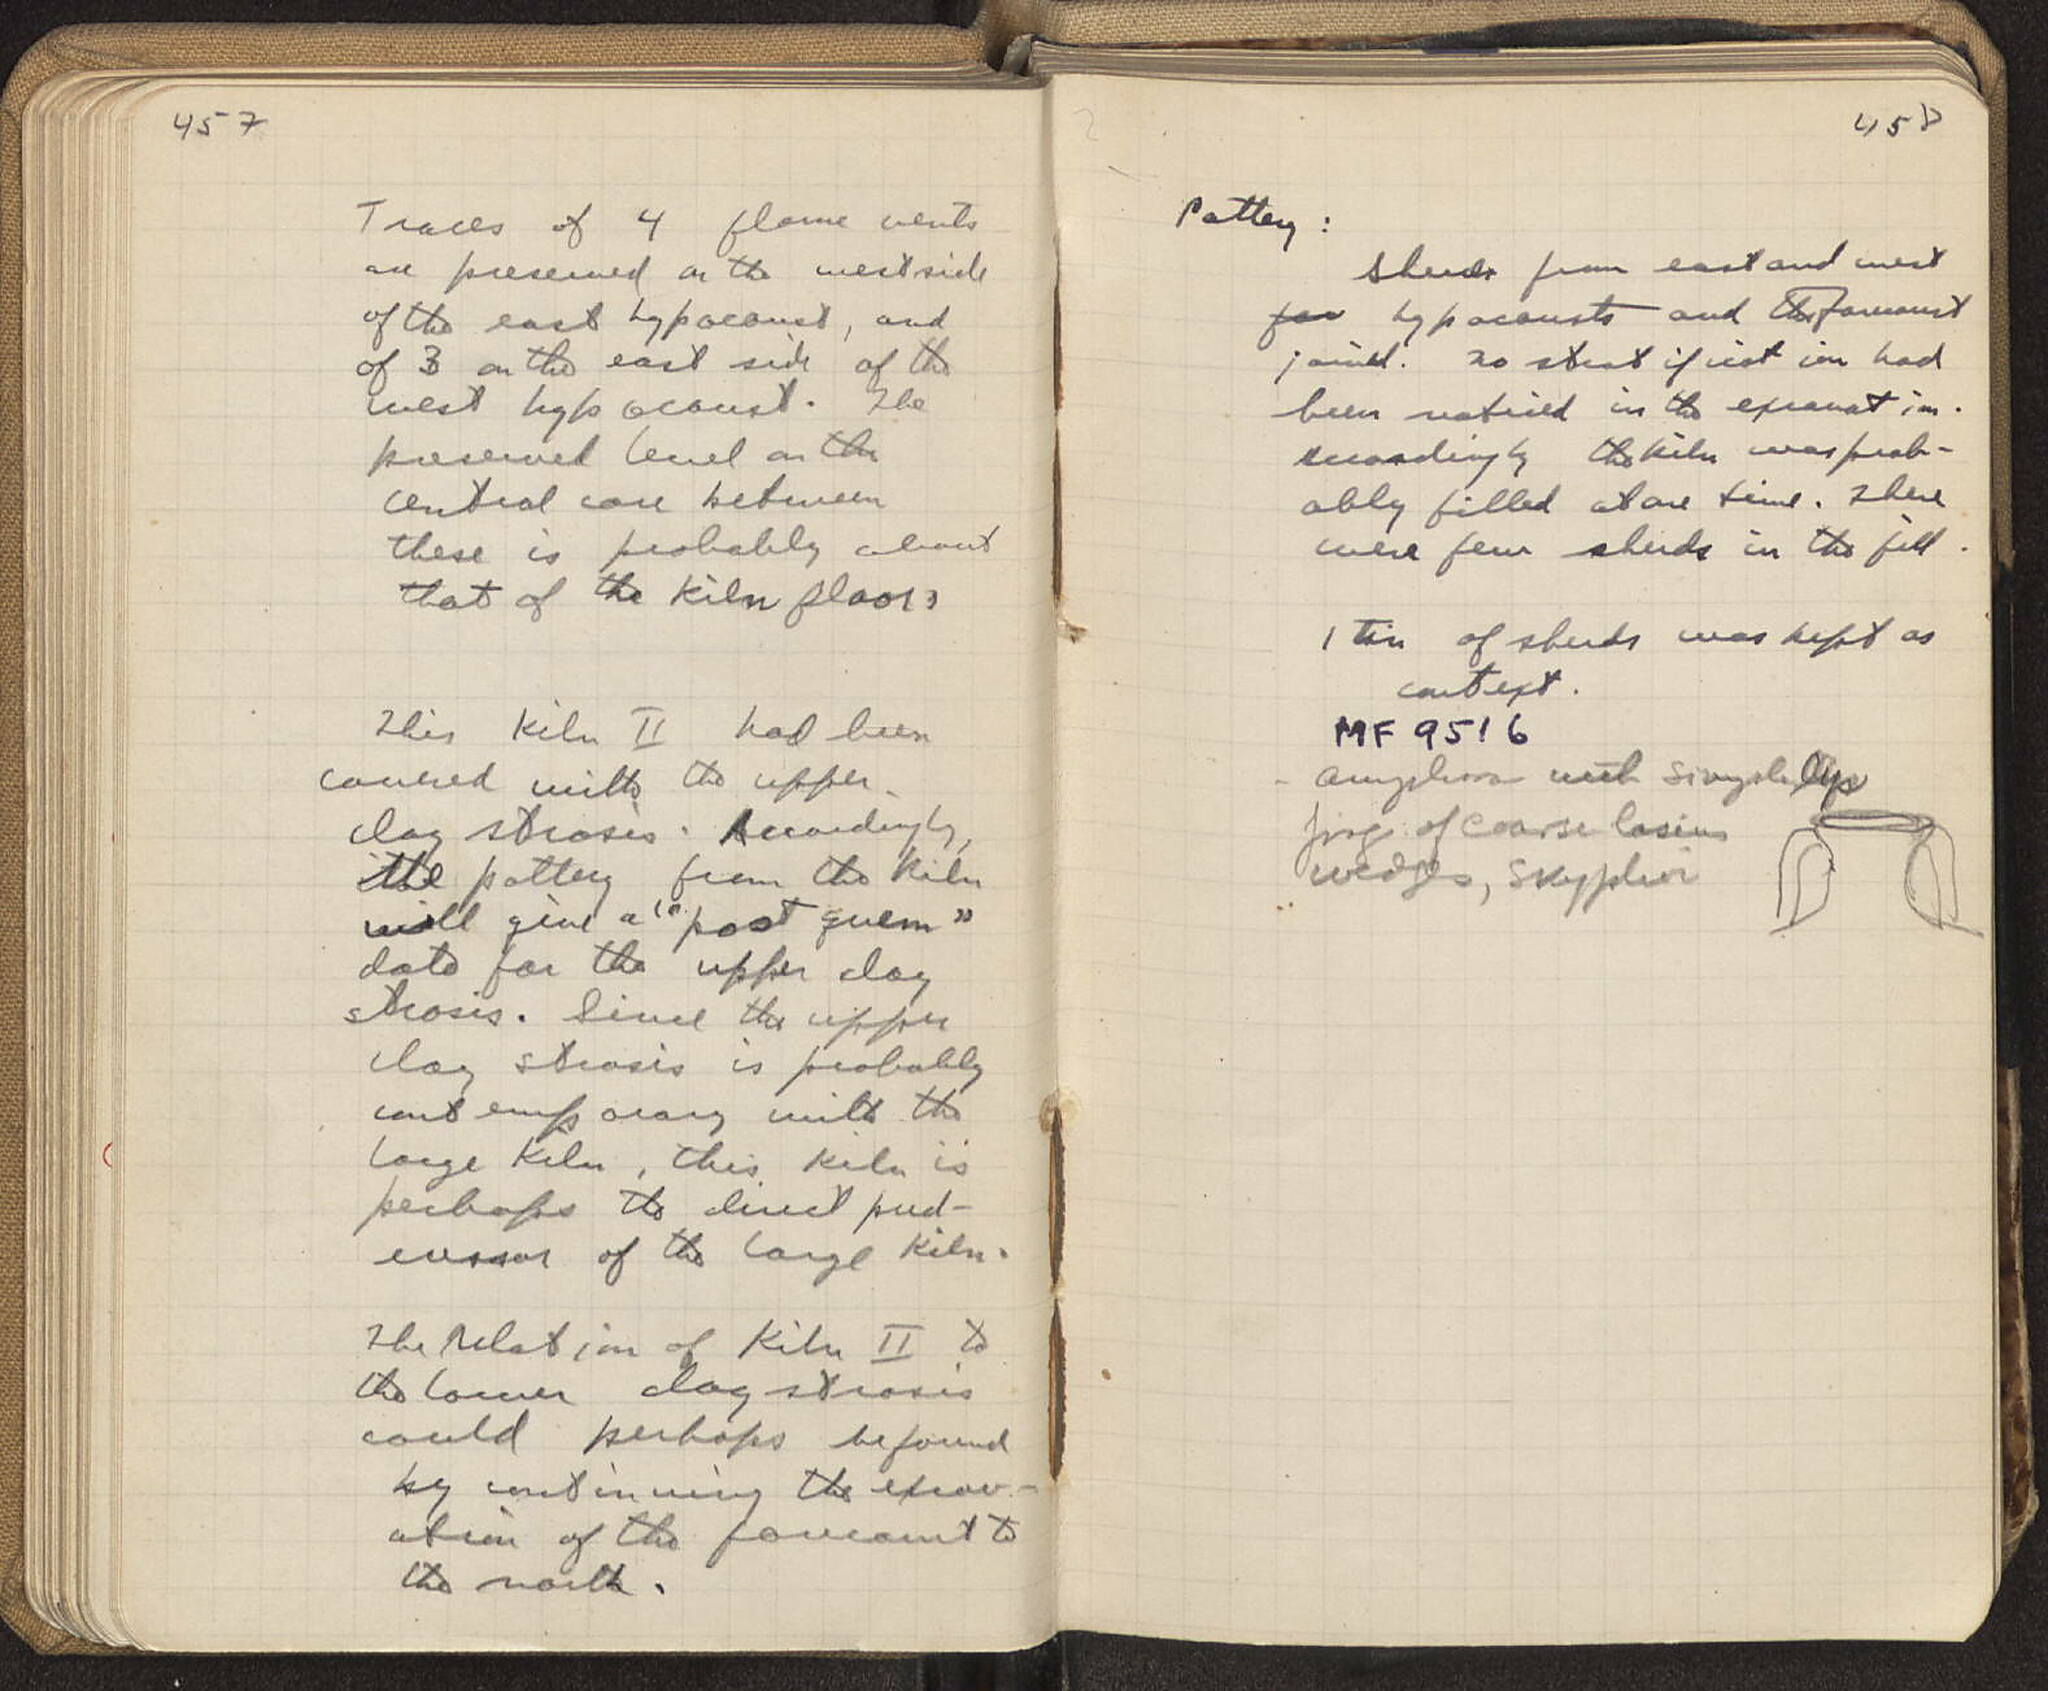 457
Traces of 4 flame vents
are preserved on the west side
of the east hypocaust, and
of 3 on the east side of the
west hypocaust. The
preserved level on the
central core between
these is probably about
that of the kiln floor.
This Kiln II had been
covered with the upper
clay strosis. Accordingly,
the pottery from the kiln
will give a "post quem"
date for the upper clay
strosis. Since the upper
clay strosis is probably
contemporary with the
large kiln, this kiln is
perhaps the direct pred-
ecessor of the large kiln.
The relation of Kiln II to
the lower clay strosis
could perhaps be found
by continuing the excav-
ation of the forecourt to
the north.
458
Pottery:
Sherds from east and west
for hypocausts and the forecourt
joined. No stratification had
been noticed in the excavation.
Accordingly the kiln was prob-
ably filled at one time. There
were few sherds in the fill.
1 tin of sherds was kept as
context.
MF 9516
amphora with simple lip
frgs. of coarse basins
wedges, skyphoi